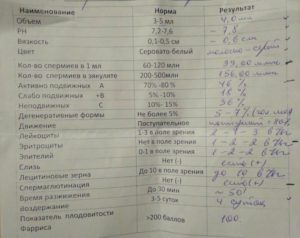 Наименование Норма Результат
Объем 3-5 мл 4,0 мл
РН 7,2-7,6 - 7,8
Вязкость 0,1-0,5 см - 0,6 см
Цвет Серовато-белый
Кол-во спермиев в 1 мл 60-120 млн 39,00 млн
Кол-во спермиев в эякуляте 200-500млн 156,00 млн
Активно подвижных А 70%-80 % 48 %
Слабо подвижных +В 5% -10% 16 %
Неподвижных С 10%- 15% 36 %
Дегенеративные формы Не более 5%
Движение Поступательное
Лейкоциты 1-3 в поле зрения
Эритроциты Нет в поле зрения 1-2-2
Эпителий 0-1 в поле зрения 1-2-2
Слизь Нет (-) (+)
Лецитиновые зерна До 10 в поле зрения до 10
Спермаглютинация Нет (-) (+)
Время разжижения До 30 мин 50
Воздержание 3-5 суток 4
Показатель плодовитости >200 баллов 100.
Фарриса